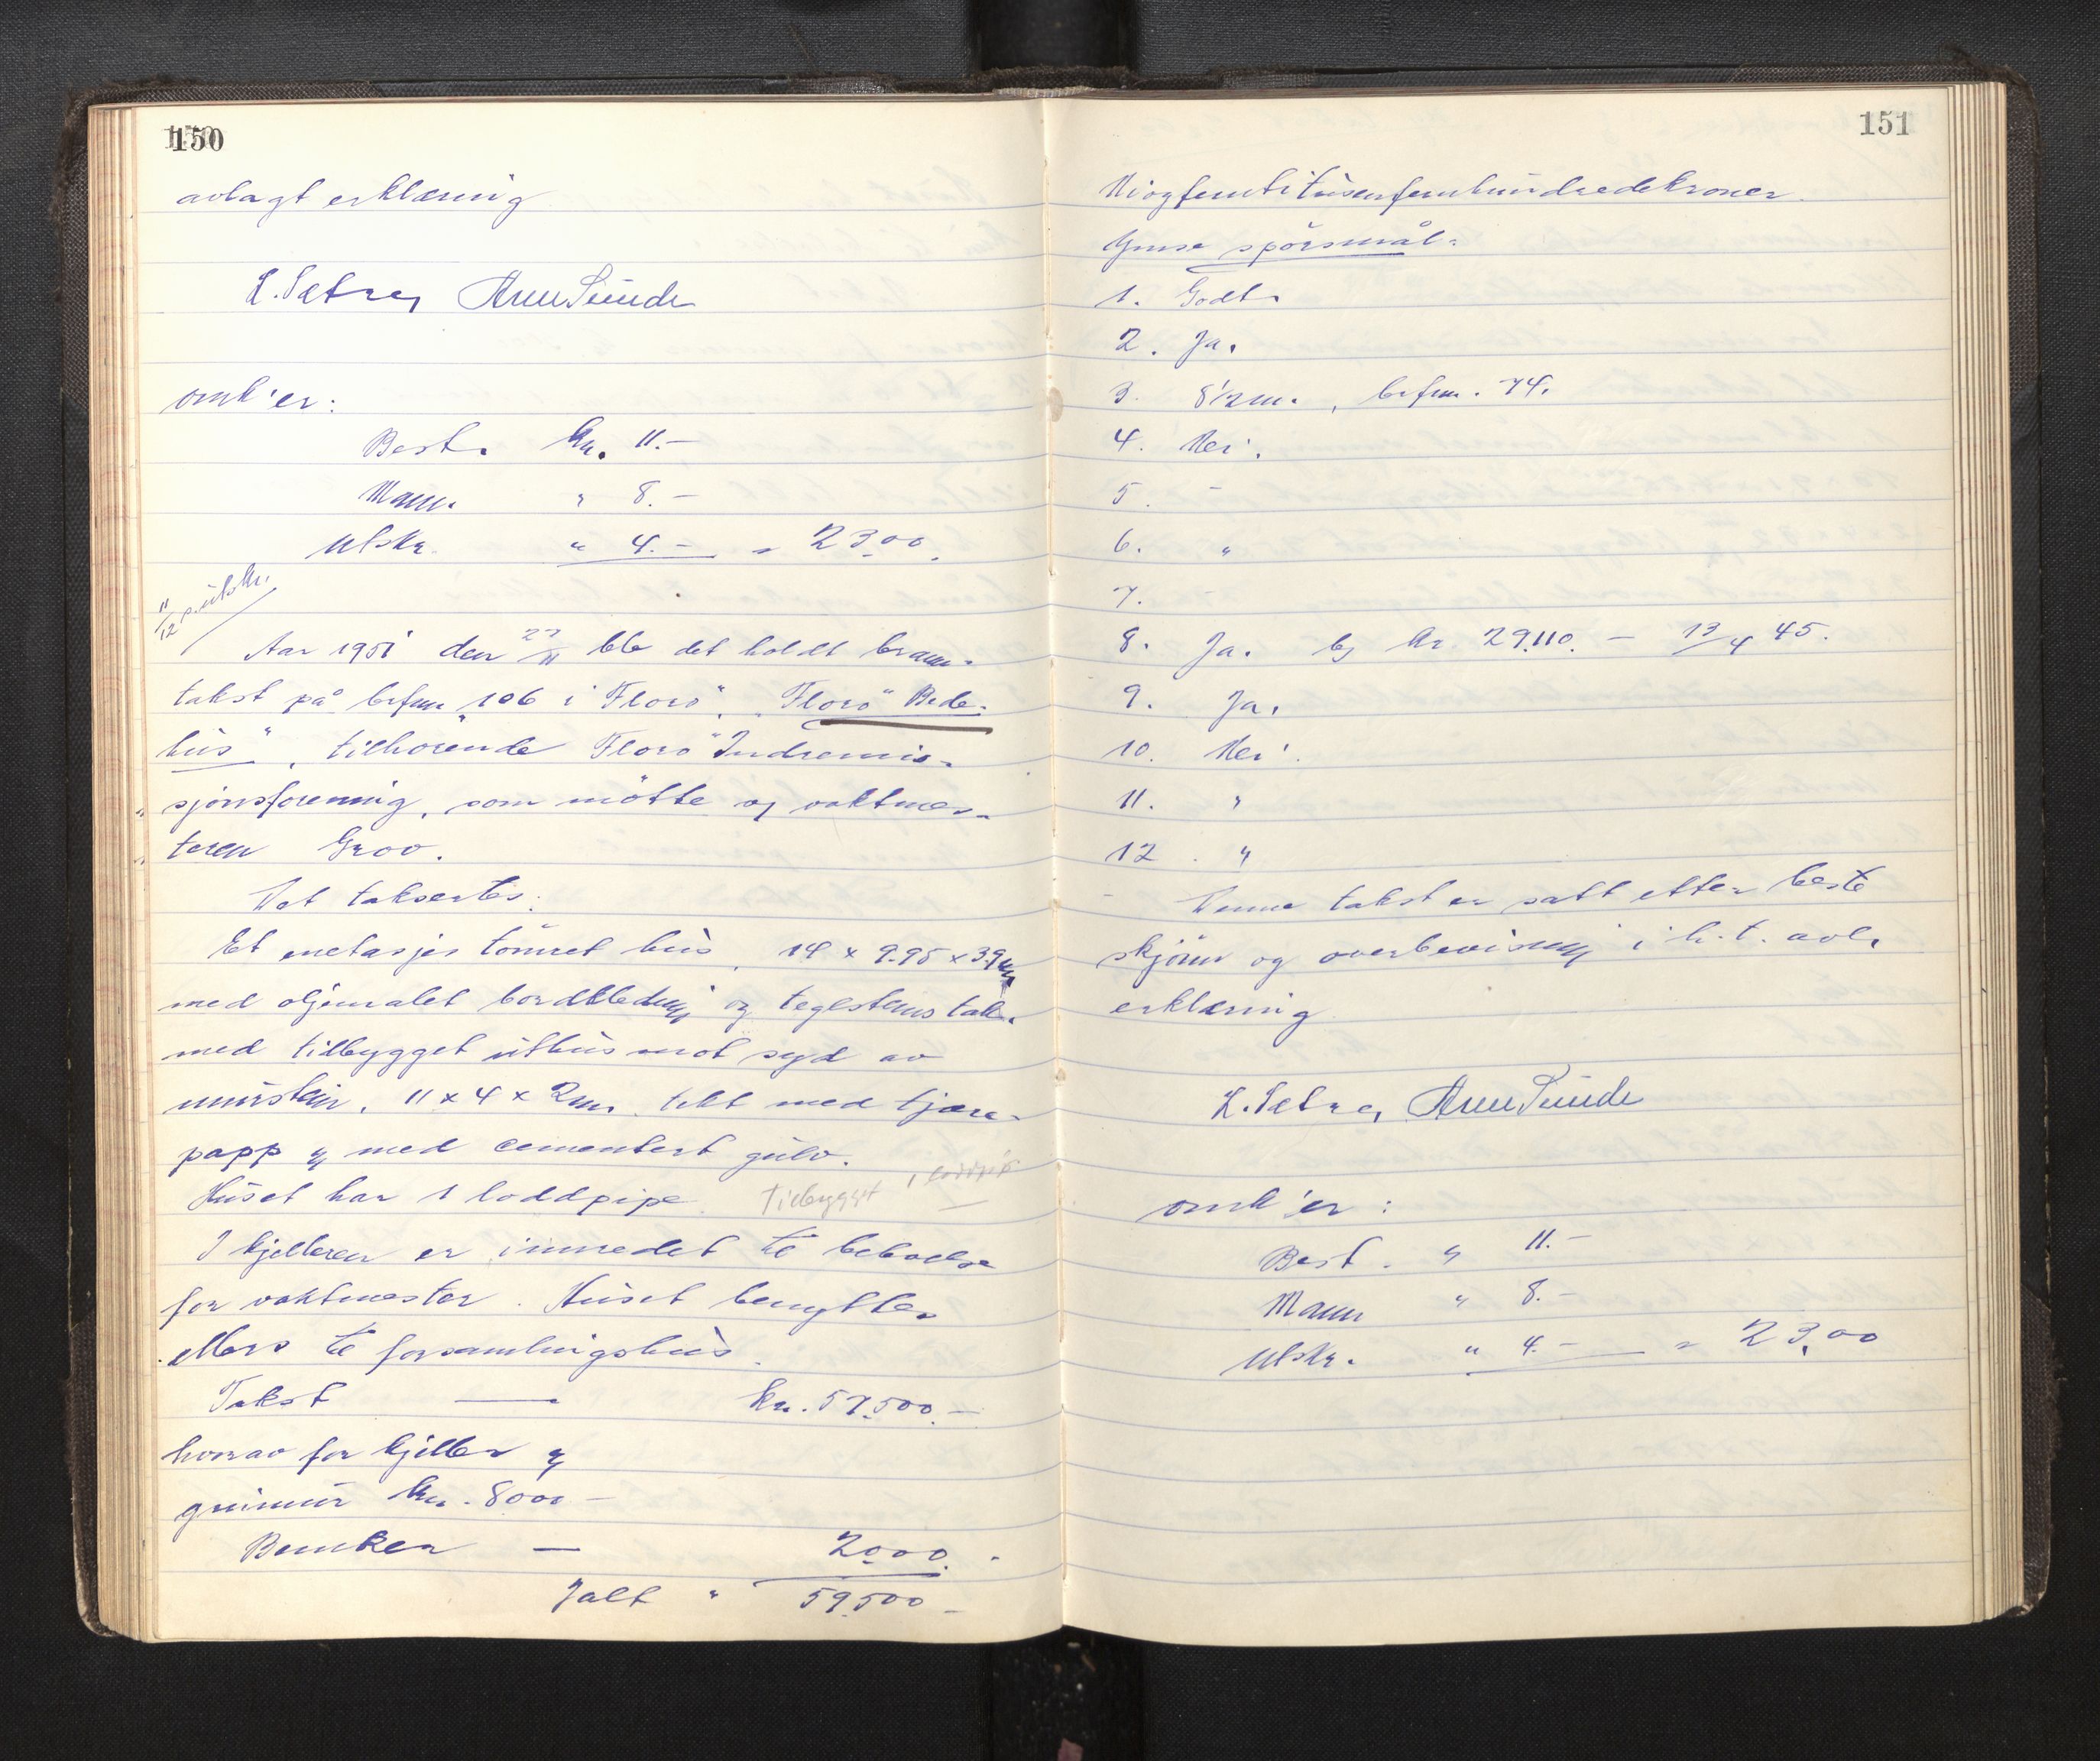 150
avlagt erklæring
L. Sætre, Arne Sunde
omk'er:
Best. kr. 11.-
Mann. " 8.-
Utskr. " 4.- = 23.00.
11/12 utskr.
Aar 1951 den 27/11 ble det holdt brann-
takst på brfnr. 106 i Florø, "Florø Bede-
hus", tilhørende Florø Indremis-
sjonsforening, som møtte og vaktmes-
teren Grov.
Det taksertes:
Et enetasjes tømret hus, 14 x 9.95 x 3.9 m
med oljemalet bordkledning og teglstens tak.
med tilbygget uthus mot syd av
murstein, 11 x 4 x 2 m. tekt med tjære-
papp og med cementert gulv.
Huset har 1 loddpipe. Tilbygget 1 loddpip
I kjelleren er innredet til beboelse
for vaktmester. Huset benyttes
ellers til forsamlingshus.
Takst — kr. 57.500.—
hvorav for kjeller og
grunmur kr. 8000 —
Benker — 2000.-
Ialt " 59.500 —
151
Niogfemtitusenfemhundredekroner.
Ymse spørsmål:
1. Godt.
2. Ja.
3. 8 1/2 m., brfnr. 74.
4. Nei.
5. -
6. "
7.
8. Ja. kr. 29.110.— 13/4 45.
9. Ja.
10. Nei.
11. "
12. "
Denne takst er satt etter beste
skjønn og overbevisning i h.t. avl.
erklæring
L. Sætre, Arne Sunde
omk'er:
Best. " 11.-
Mann " 8.-
Utskr. " 4.- = 23.00